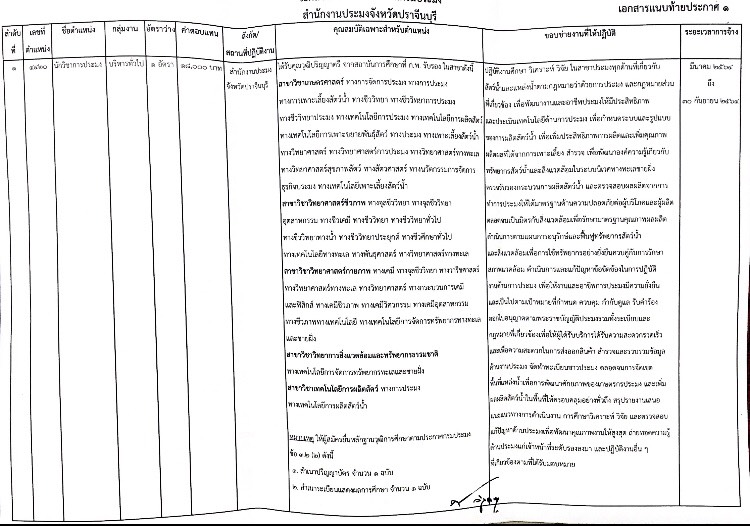 สำนักงานประมงจังหวัดปราจีนบุรี
เอกสารแนบท้ายประกาศ ๑
ลำดับที่
เลขที่ตำแหน่ง
ชื่อตำแหน่ง
กลุ่มงาน
อัตราว่าง
ค่าตอบแทน
สังกัด/
สถานที่ปฏิบัติงาน
คุณสมบัติเฉพาะสำหรับตำแหน่ง
ขอบข่ายงานที่ให้ปฏิบัติ
ระยะเวลาการจ้าง
๑
นักวิชาการประมง
บริหารทั่วไป
๑ อัตรา
๑๘,๐๐๐ บาท
สำนักงานประมง
จังหวัดปราจีนบุรี
ได้รับวุฒิปริญญาตรี จากสถาบันการศึกษาที่ ก.พ. รับรอง ในสาขาดังนี้
สาขาวิชาเกษตรศาสตร์ ทางการจัดการประมง ทางการประมง
ทางการเพาะเลี้ยงสัตว์น้ำ ทางชีววิทยา ทางชีววิทยาการประมง
ทางชีววิทยาประมง ทางเทคโนโลยีการประมง ทางเทคโนโลยีการผลิตสัตว์
ทางเทคโนโลยีการเพาะขยายพันธุ์สัตว์ ทางประมง ทางเพาะเลี้ยงสัตว์น้ำ
ทางวิทยาศาสตร์ ทางวิทยาศาสตร์การประมง ทางวิทยาศาสตร์ทางทะเล
ทางวิทยาศาสตร์สุขภาพสัตว์ ทางสัตวศาสตร์ ทางนวัตกรรมการจัดการ
ธุรกิจประมง ทางเทคโนโลยีเพาะเลี้ยงสัตว์น้ำ
สาขาวิชาวิทยาศาสตร์ชีวภาพ ทางจุลชีววิทยา ทางจุลชีววิทยา
อุตสาหกรรม ทางชีวเคมี ทางชีววิทยา ทางชีววิทยาทั่วไป
ทางชีววิทยาทางน้ำ ทางชีววิทยาประยุกต์ ทางชีวศึกษาทั่วไป
ทางเทคโนโลยีทางทะเล ทางพันธุศาสตร์ ทางวิทยาศาสตร์ทางทะเล
สาขาวิชาวิทยาศาสตร์กายภาพ ทางเคมี ทางจุลชีววิทยา ทางวาริชศาสตร์
ทางวิทยาศาสตร์ทางทะเล ทางวิทยาศาสตร์ ทางกระบวนการเคมี
และฟิสิกส์ ทางเคมีชีวภาพ ทางเคมีวิศวกรรม ทางเคมีอุตสาหกรรม
ทางชีวภาพทางเทคโนโลยี ทางเทคโนโลยีการจัดการทรัพยากรทางทะเล
และชายฝั่ง
สาขาวิชาวิทยาการสิ่งแวดล้อมและทรัพยากรธรรมชาติ
ทางเทคโนโลยีการจัดการทรัพยากรทะเลและชายฝั่ง
สาขาวิชาเทคโนโลยีการผลิตสัตว์ ทางการประมง
ทางเทคโนโลยีการผลิตสัตว์น้ำ
หมายเหตุ ให้ผู้สมัครยื่นหลักฐานวุฒิการศึกษาตามประกาศกรมประมง
ดังนี้
๑. สำเนาปริญญาบัตร จำนวน ๑ ฉบับ
๒. สำเนาระเบียนแสดงผลการศึกษา จำนวน ๑ ฉบับ
ปฏิบัติงานศึกษา วิเคราะห์ วิจัย ในสาขาประมงทุกด้านที่เกี่ยวกับ
สัตว์น้ำและแหล่งน้ำตามกฎหมายว่าด้วยการประมง และกฎหมายส่วน
ที่เกี่ยวข้อง เพื่อพัฒนางานและอาชีพประมงให้มีประสิทธิภาพ
และประเมินเทคโนโลยีด้านการประมง เพื่อกำหนดระบบและรูปแบบ
ของการผลิตสัตว์น้ำ เพื่อเพิ่มประสิทธิภาพการผลิตและเพิ่มคุณภาพ
ผลผลิตที่ได้จากการเพาะเลี้ยง สำรวจ เพื่อพัฒนาองค์ความรู้เกี่ยวกับ
ทรัพยากรสัตว์น้ำและสิ่งแวดล้อมในระบบนิเวศทางทะเลชายฝั่ง
ตรวจรับรองกระบวนการผลิตสัตว์น้ำ และตรวจสอบผลผลิตจากการ
ทำการประมงให้ได้มาตรฐานด้านความปลอดภัยต่อผู้บริโภคและผู้ผลิต
ตลอดจนเป็นมิตรกับสิ่งแวดล้อมเพื่อรักษามาตรฐานคุณภาพผลผลิต
ดำเนินการตามแผนการอนุรักษ์และฟื้นฟูทรัพยากรสัตว์น้ำ
และสิ่งแวดล้อมเพื่อการใช้ทรัพยากรอย่างยั่งยืนควบคู่กับการรักษา
สภาพแวดล้อม ดำเนินการและแก้ไขปัญหาข้อขัดข้องในการปฏิบัติ
งานด้านการประมง เพื่อให้งานและอาชีพการประมงมีความยั่งยืน
และเป็นไปตามเป้าหมายที่กำหนด ควบคุม กำกับดูแล รับคำร้อง
ออกใบอนุญาตตามพระราชบัญญัติประมงรวมทั้งระเบียบและ
กฎหมายที่เกี่ยวข้องเพื่อให้ผู้ได้รับบริการได้รับความสะดวกรวดเร็ว
และเพื่อความสะดวกในการส่งออกสินค้า สำรวจและรวบรวมข้อมูล
ด้านการประมง จัดทำทะเบียนชาวประมง ตลอดจนการจัดเขต
พื้นที่แหล่งน้ำเพื่อการพัฒนาศักยภาพของเกษตรกรประมง และเพิ่ม
ผลผลิตสัตว์น้ำในพื้นที่ให้ครอบคลุมอย่างทั่วถึง สรุปรายงานเสนอ
แนะแนวทางการดำเนินงาน การศึกษาวิเคราะห์ วิจัย และตรวจสอบ
แก้ปัญหาด้านประมงเพื่อพัฒนาคุณภาพงานให้สูงสุด ถ่ายทอดความรู้
ด้านประมงแก่เจ้าหน้าที่ระดับรองลงมา และปฏิบัติงานอื่น ๆ
ที่เกี่ยวข้องตามที่ได้รับมอบหมาย
ถึง